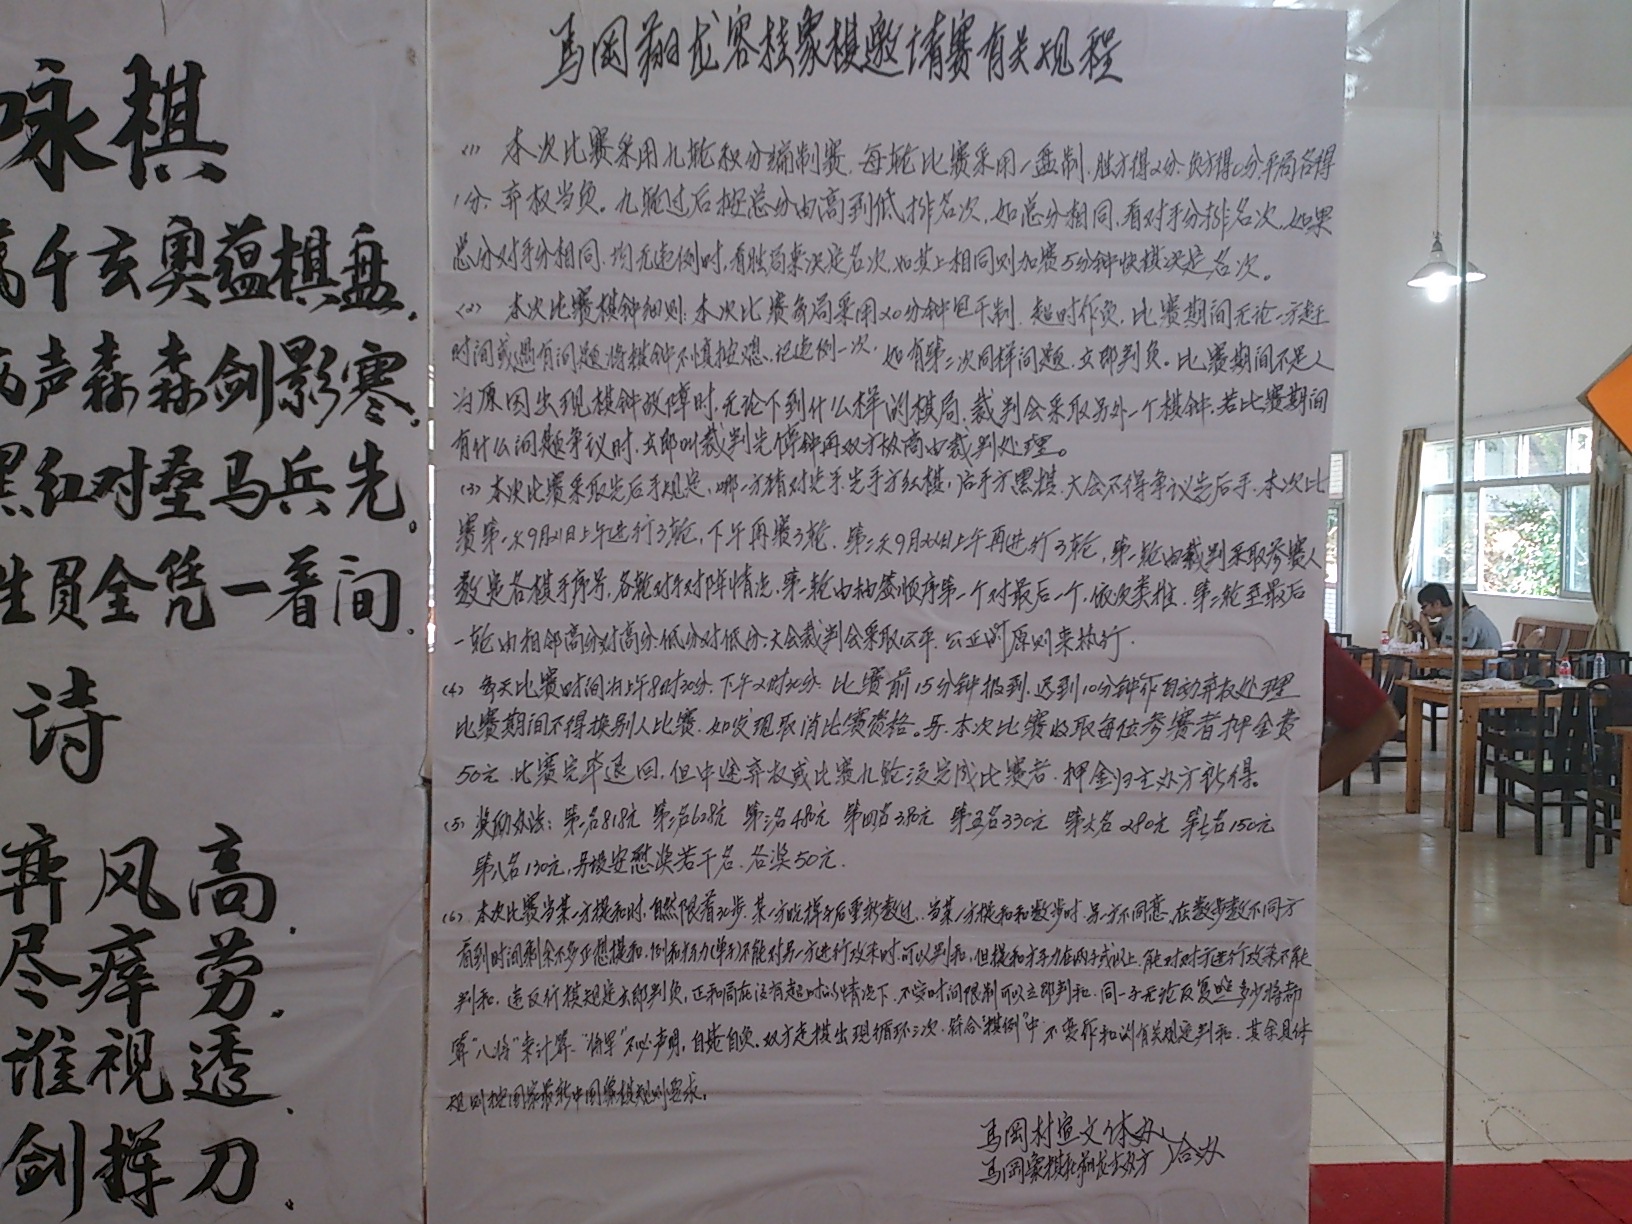 咏棋
千玄奥蕴棋盘.
声森森剑影寒.
红对垒马兵先.
全凭一着间.
诗
弈风高.
尽瘁劳.
谁视透.
剑挥刀.
马岡翔龙容桂象棋邀请赛有关规程
(1) 本次比赛采用九轮积分编制赛.每轮比赛采用一盘制.胜方得2分.负方得0分.平局各得
1分.弃权当负。九轮过后按总分由高到低排名次,如总分相同,看对手分排名次,如果
总分对手分相同.均无违例时,看胜局来决定名次.如其上相同则加赛5分钟快棋决定名次。
(2) 本次比赛棋钟细则:本次比赛每局采用20分钟包干制.超时作负.比赛期间无论一方赶
时间或遇有问题将棋钟不慎按熄.记违例一次.如有第二次同样问题.立即判负。比赛期间不是人
为原因出现棋钟故障时,无论下到什么样的棋局.裁判会采取另外一个棋钟.若比赛期间
有什么问题争议时.立即叫裁判先停钟再双方协商由裁判处理。
(3) 本次比赛采取先后手规定,哪一方猜对先手先手方红棋,后手方黑棋.大会不得争议先后手.本次比
赛第一天9月21日上午进行3轮,下午再赛3轮.第二天9月22日上午再进行3轮,第一轮由裁判采取参赛人
数定各棋手序号,各轮对手对阵情况,第一轮由抽签顺序第一个对最后一个,依次类推.第二轮至最后
一轮由相邻高分对高分.低分对低分.大会裁判会采取公平.公正的原则来执行.
(4) 每天比赛时间为上午8时30分.下午2时30分.比赛前15分钟报到.迟到10分钟作自动弃权处理
比赛期间不得换别人比赛.如发现取消比赛资格。另.本次比赛收取每位参赛者押金费
50元.比赛完毕退回,但中途弃权或比赛九轮没完成比赛者.押金归主办方所得。
(5) 奖励办法:第一名818元 第二名628元 第三名480元 第四名380元 第五名330元 第六名280元 第七名150元
第八名130元,另设安慰奖若干名.各奖50元.
(6) 本次比赛当某一方提和时,自然限着30步.某一方吃掉子后重新数过.当某一方提和和数步时.另一方不同意.在数步数不同方
看到时间剩余不多正想提和.例和方子力(单子)不能对另一方进行攻杀时.可以判和,但提和方子力在两子或以上.能对对方进行攻杀不能
判和.违反行棋规定立即判负,正和局在没有超时的情况下.不受时间限制可以立即判和.同一子无论反复多少将都
算"八将"来计算."将军"不必声明,自毙自负.双方走棋出现循环三次.符合"棋例"中"不变作和的有关规定判和.其余具体
规则按国家最新中国象棋规则要求。
马岡村宣文体办
马岡象棋社翔龙主办方
合办